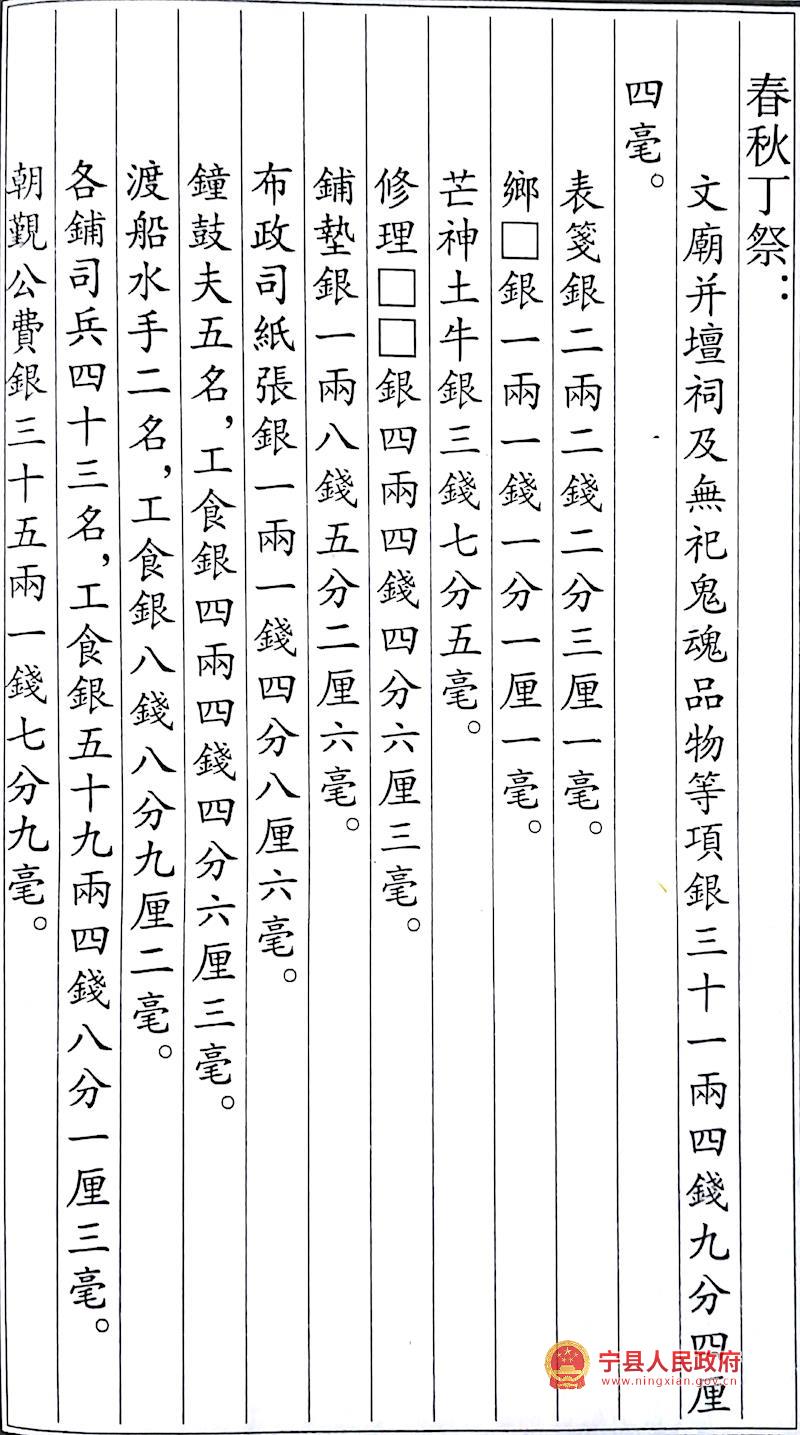 春秋丁祭：
文廟并壇祠及無祀鬼魂品物等項銀三十一兩四錢九分四厘
四毫。
表箋銀二兩二錢二分三厘一毫。
鄉□銀一兩一錢一分一厘一毫。
芒神土牛銀三錢七分五毫。
修理□□銀四兩四錢四分六厘三毫。
鋪墊銀一兩八錢五分二厘六毫。
布政司紙張銀一兩一錢四分八厘六毫。
鐘鼓夫五名，工食銀四兩四錢四分六厘三毫。
渡船水手二名，工食銀八錢八分九厘二毫。
各鋪司兵四十三名，工食銀五十九兩四錢八分一厘三毫。
朝覲公費銀三十五兩一錢七分九毫。
宁县人民政府
www.ningxian.gov.cn